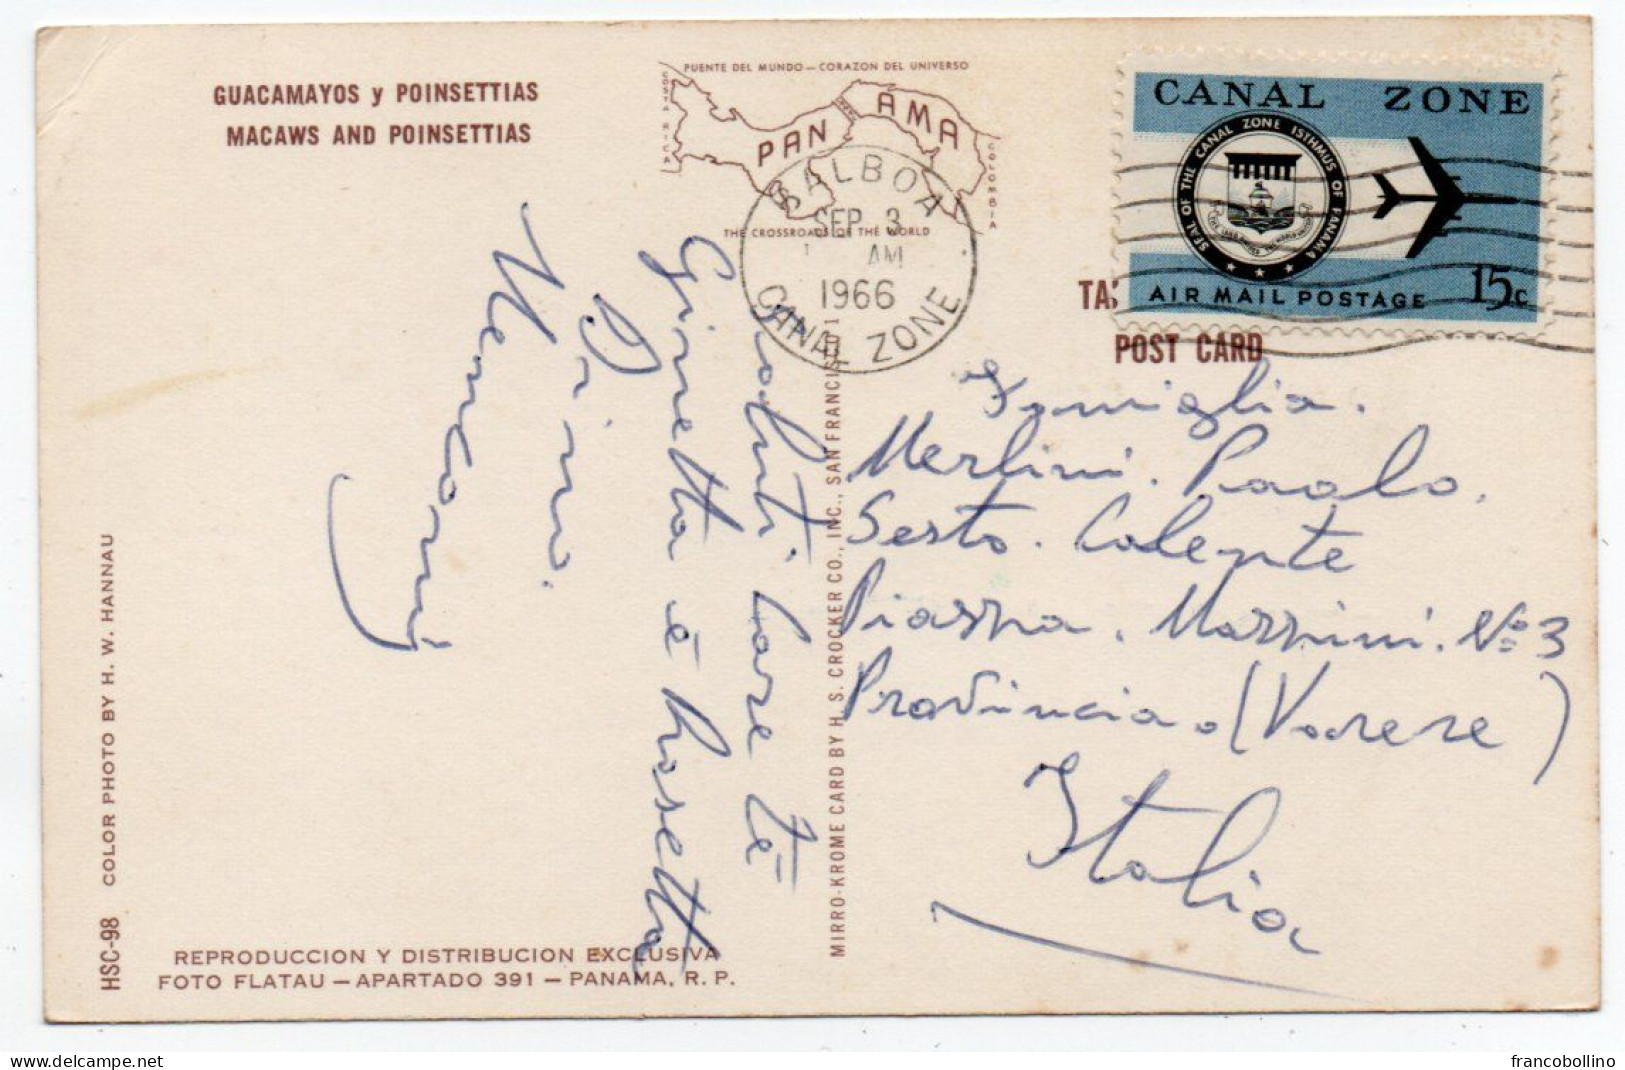 GUACAMAYOS y POINSETTIAS
MACAWS AND POINSETTIAS
PUENTE DEL MUNDO — CORAZON DEL UNIVERSO
COSTA RICA
PAN AMA
COLOMBIA
THE CROSSROADS OF THE WORLD
BALBOA
SEP 3
AM
1966
CANAL ZONE
CANAL ZONE
SEAL OF THE CANAL ZONE ISTHMUS OF PANAMA
AIR MAIL POSTAGE 15c
POST CARD
Saluti. Care tè
Ginetta è Rosetta
Primo.
Famiglia.
Merlini. Paolo.
Sesto. Calente
Piazza. Mazzini. No 3
Provincia (Varese)
Italia
MIRRO-KROME CARD BY H. S. CROCKER CO., INC., SAN FRANCISCO 1
HSC-98 COLOR PHOTO BY H. W. HANNAU
REPRODUCCION Y DISTRIBUCION EXCLUSIVA
FOTO FLATAU — APARTADO 391 — PANAMA, R. P.
delcampe.net
francobollino